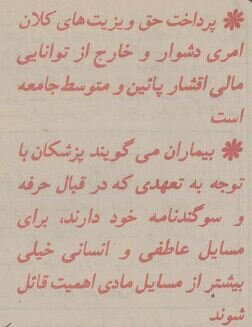 ✽ پرداخت حق ویزیت‌های کلان
امری دشوار و خارج از توانایی
مالی اقشار پائین و متوسط جامعه
است
✽ بیماران می گویند پزشکان با
توجه به تعهدی که در قبال حرفه
و سوگندنامه خود دارند، برای
مسایل عاطفی و انسانی خیلی
بیشتر از مسایل مادی اهمیت قائل
شوند